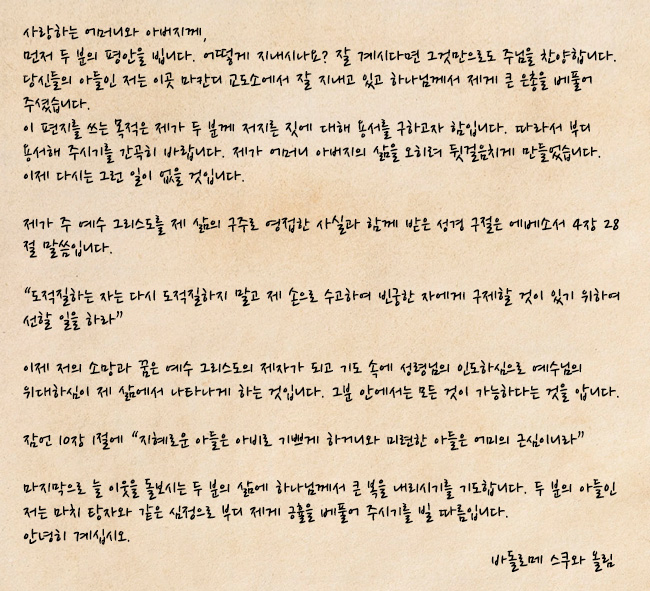 사랑하는 어머니와 아버지께,
먼저 두 분의 평안을 빕니다. 어떻게 지내시나요? 잘 계시다면 그것만으로도 주님을 찬양합니다.
당신들의 아들인 저는 이곳 마칸디 교도소에서 잘 지내고 있고 하나님께서 제게 큰 은총을 베풀어
주셨습니다.
이 편지를 쓰는 목적은 제가 두 분께 저지른 짓에 대해 용서를 구하고자 함입니다. 따라서 부디
용서해 주시기를 간곡히 바랍니다. 제가 어머니 아버지의 삶을 오히려 뒷걸음치게 만들었습니다.
이제 다시는 그런 일이 없을 것입니다.
제가 주 예수 그리스도를 제 삶의 구주로 영접한 사실과 함께 받은 성경 구절은 에베소서 4장 28
절 말씀입니다.
“도적질하는 자는 다시 도적질하지 말고 제 손으로 수고하여 빈궁한 자에게 구제할 것이 있기 위하여
선할 일을 하라”
이제 저의 소망과 꿈은 예수 그리스도의 제자가 되고 기도 속에 성령님의 인도하심으로 예수님의
위대하심이 제 삶에서 나타나게 하는 것입니다. 그분 안에서는 모든 것이 가능하다는 것을 압니다.
잠언 10장 1절에 “지혜로운 아들은 아비로 기쁘게 하거니와 미련한 아들은 어미의 근심이니라”
마지막으로 늘 이웃을 돌보시는 두 분의 삶에 하나님께서 큰 복을 내리시기를 기도합니다. 두 분의 아들인
저는 마치 탕자와 같은 심정으로 부디 제게 긍휼을 베풀어 주시기를 빌 따름입니다.
안녕히 계십시오.
바돌로메 스쿠와 올림